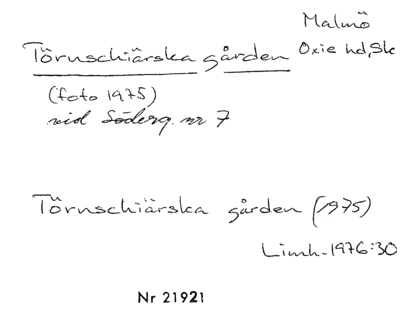 Malmö
Törnschiärska gården Oxie hd, Sk
(foto 1975)
vid Söderg. nr 7
Törnschiärska gården (1975)
Limh. 1976:30
Nr 21921